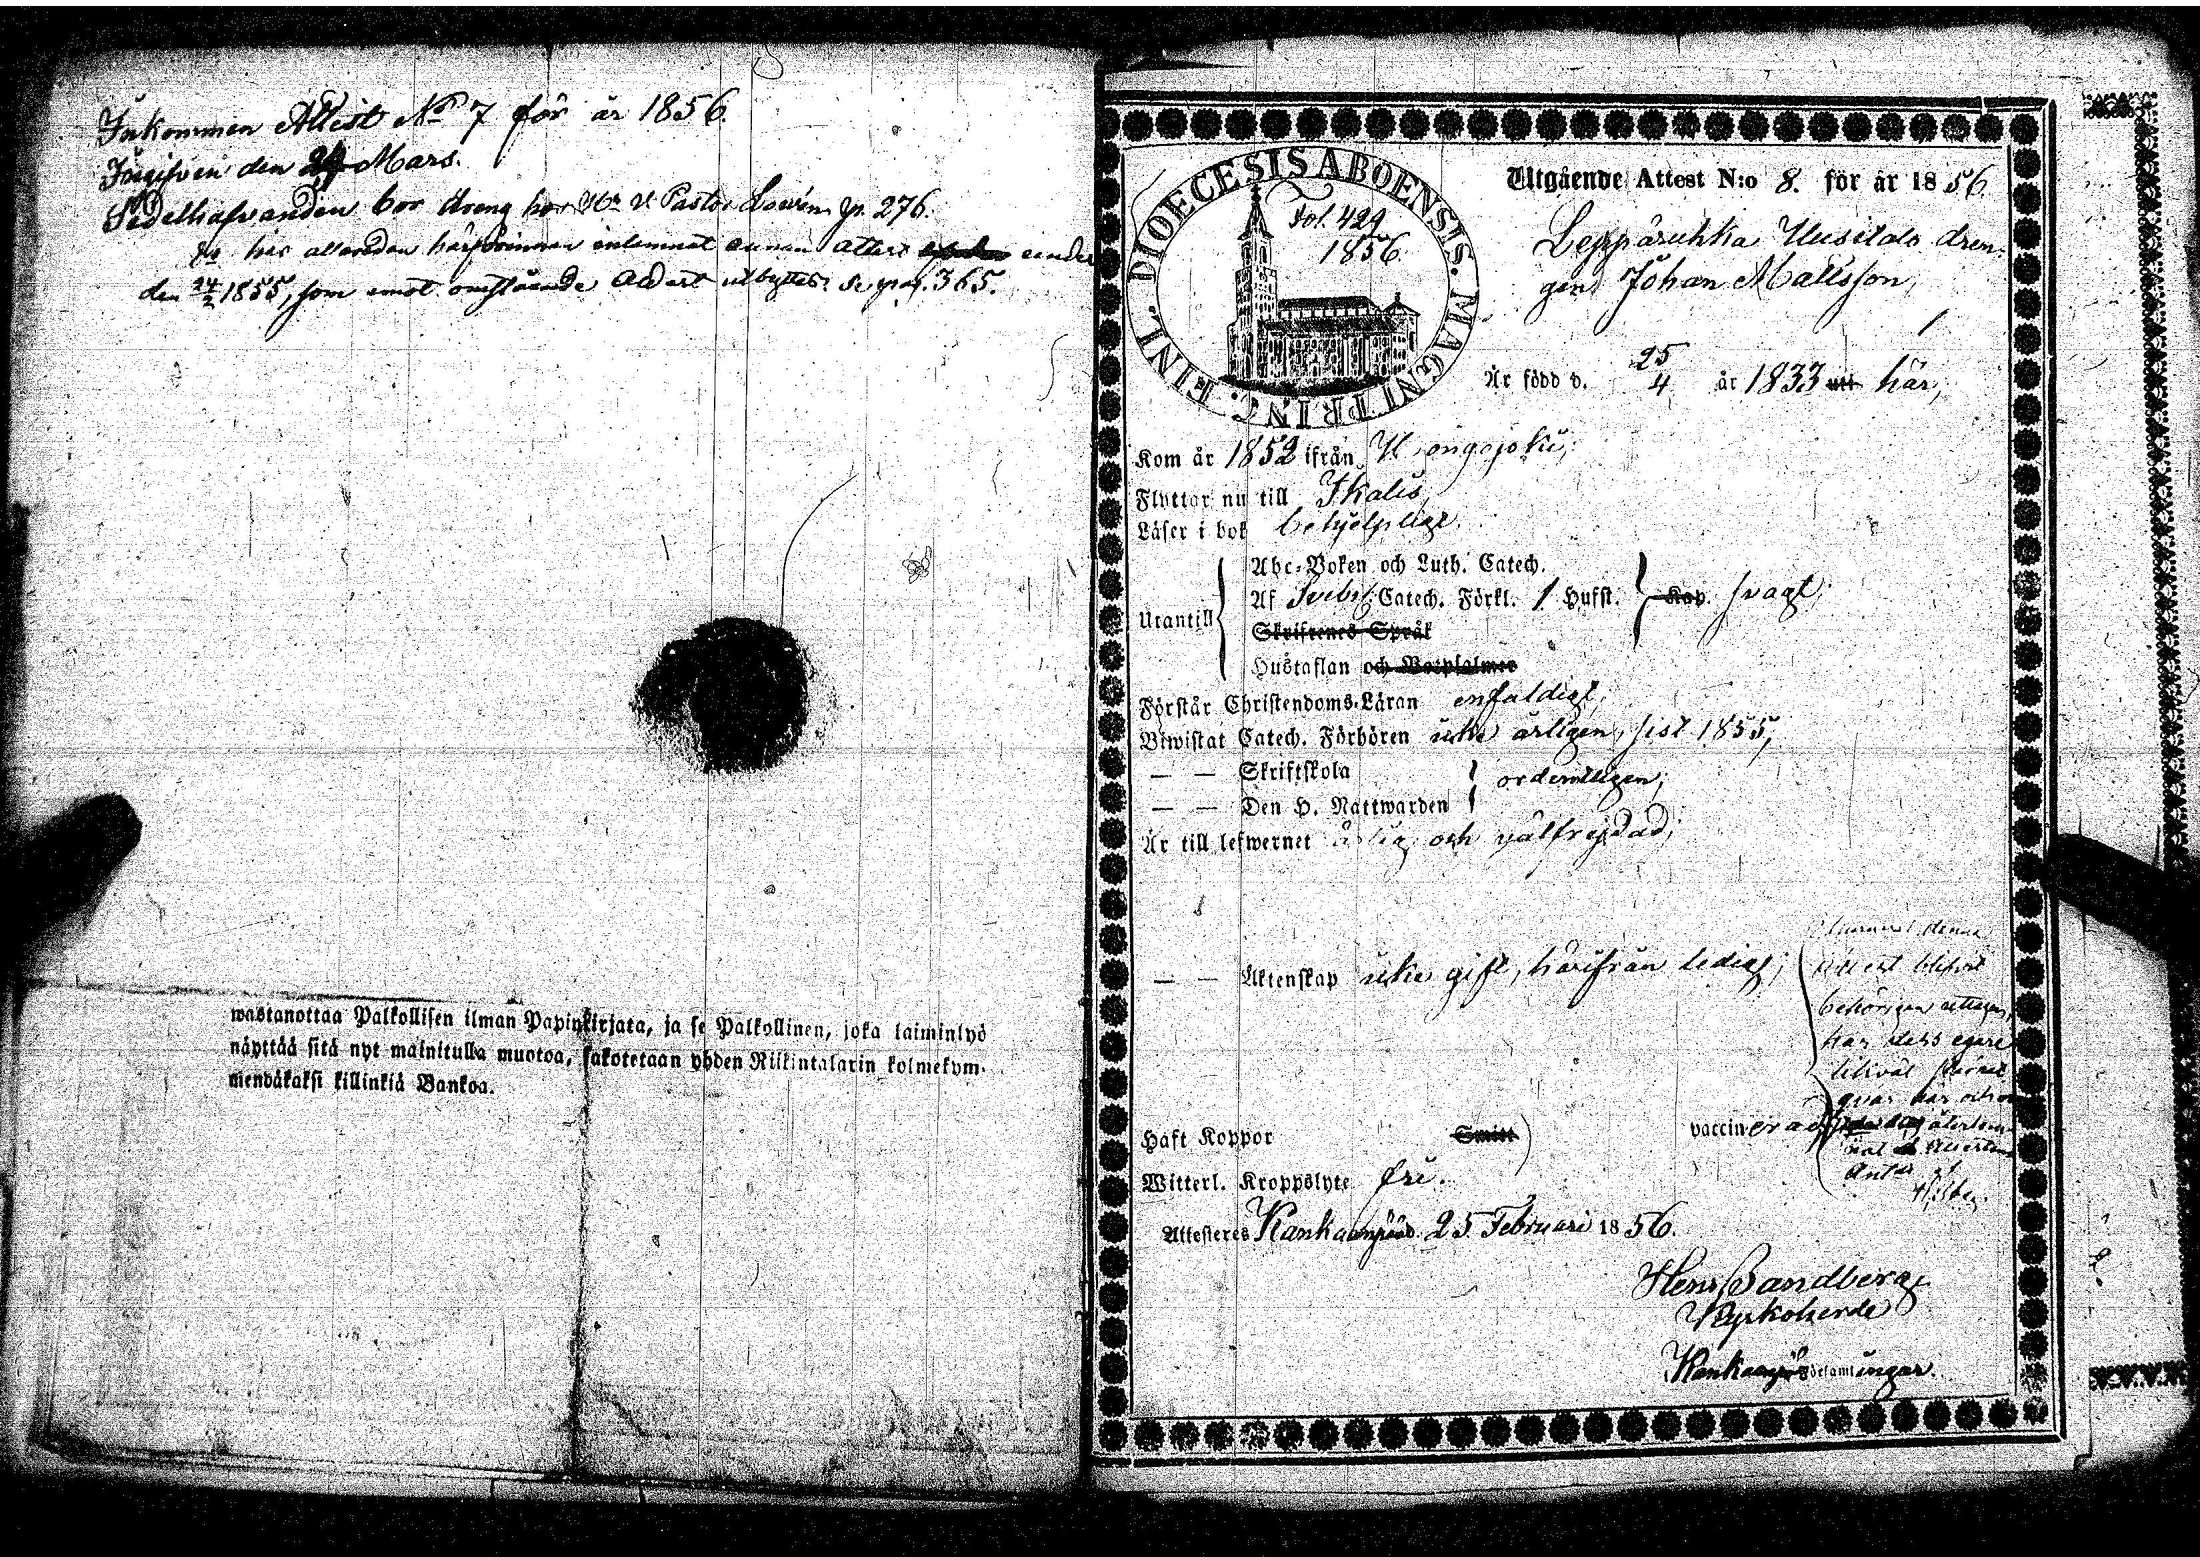 Inkommen Attest No 7 för år 1856.
Ingifven den Mars.
Sedelhafvanden bor dreng hos V. Pastor p. 276.
har allaredan härförinnan inlemnat annan attest under
den 24/2 1855, som emot omstående Attest utbyttes se pag. 365.
wastanottaa Palkollisen ilman Papinkirjata, ja se Palkollinen, joka laiminlyö
näyttää sitä nyt mainitulla muotoa, sakotetaan yhden Riikintalarin kolmekym-
mendäkaksi killinkiä Bankoa.
DIOECESIS ABOENSIS. MAGNI PRINC. FINL.
Fol. 429
1856
Utgående Attest N:o 8. för år 1856.
Leppäruhka Uusitalo dren-
gen Johan Mattsson,
Är född d. 25/4 år 1833 här,
Kom år 1852 ifrån Hongojoki,
Flyttar nu till Ikalis,
Läser i bok behjelpligt.
Abc-Boken och Luth. Catech.
Utantill Af Svebel. Catech. Förkl. 1 Hufst. Kap. svagt,
Skriftenes Språk
Hustaflan och Botpsalmer
Förstår Christendoms-Läran enfaldigt,
Biwistat Catech. Förhören icke årligen, sist 1855,
— — Skriftskola ordentligen,
— — Den H. Nattwarden
Är till lefwernet ärlig och välfrejdad,
— — Äktenskap icke gift, härifrån ledig;
denna
attest blifvit
behörigen uttagen,
har dess egare
likväl
qvar här och
Haft Koppor Smitt vaccinerad
Witterl. Kroppslyte fri.
Attesteras Kankaanpää d. 25 Februari 1856.
Henr. Sandberg
Kyrkoherde
Kankaanpää Församlingar.